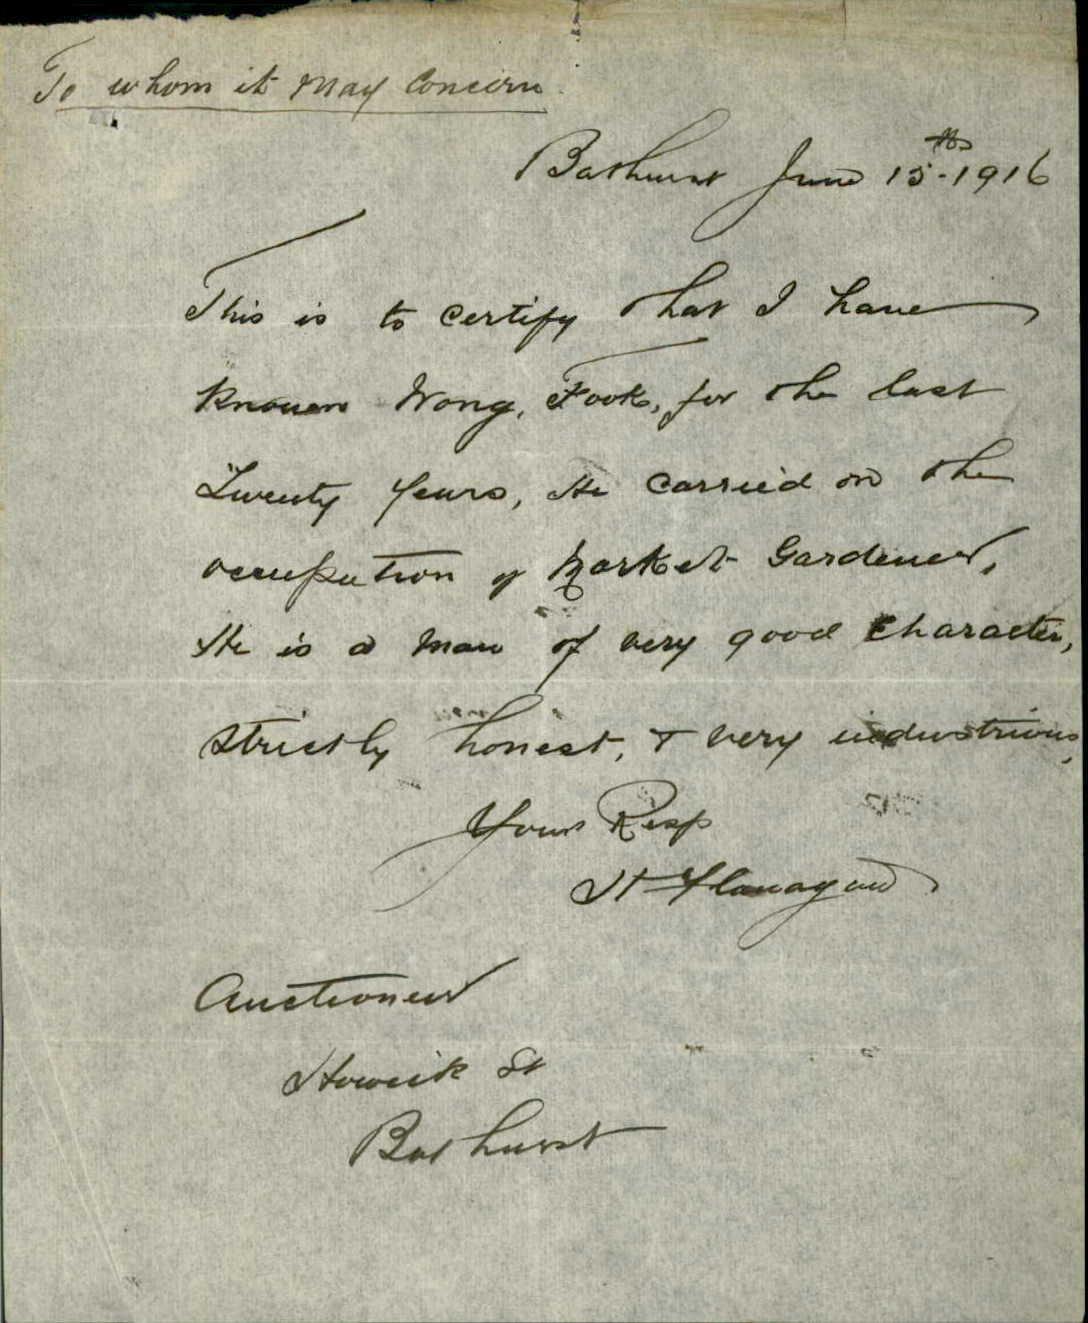 To whom it May Concern
Bathurst June 15th-1916
This is to certify that I have
known Wong, Fook, for the last
Twenty Years, He carried on the
occupation of Market Gardener,
He is a man of very good Character,
strictly honest, & very industrious,
Yours Resp
H Flanagan
Auctioneer
Howick St
Bathurst